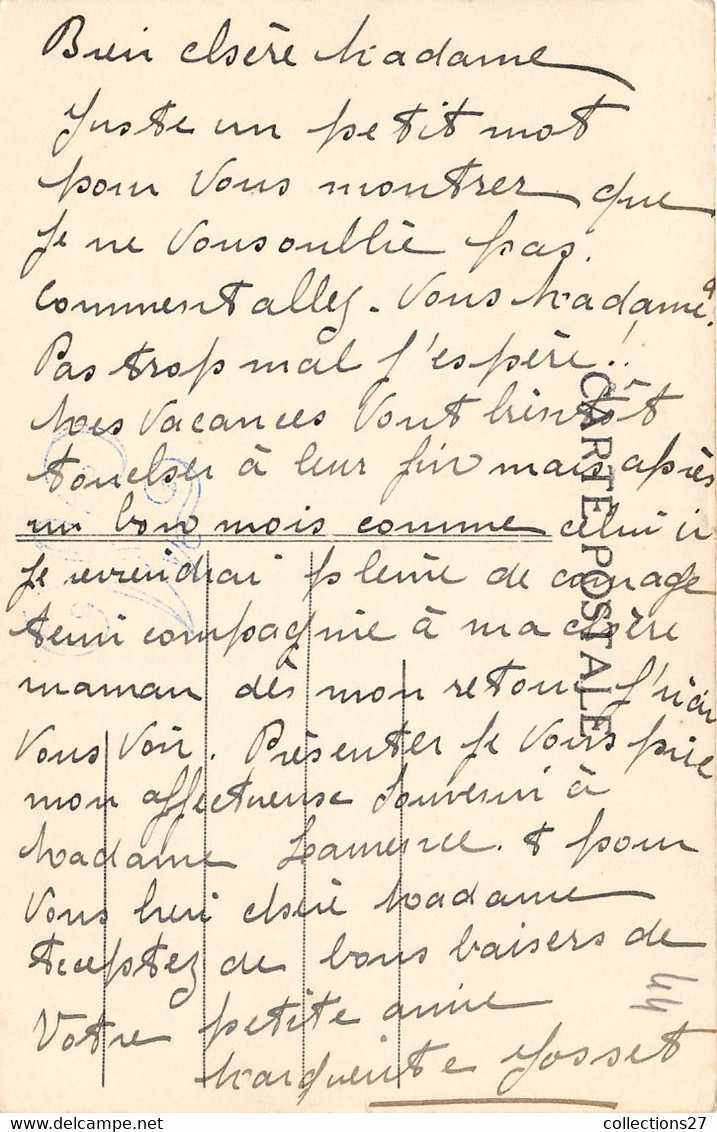 Bien chère Madame
Juste un petit mot
pour vous montrer que
je ne vous oublie pas.
Comment allez-vous Madame?
Pas trop mal j'espère!!
Mes vacances vont bientôt
toucher à leur fin mais après
un bon mois comme celui ci
je reviendrai pleine de courage
tenir compagnie à ma chère
maman dès mon retour j'irai
vous voir. Présenter je vous prie
mon affectueux souvenir à
Madame et pour
vous bien chère Madame
acceptez de bons baisers de
Votre petite amie
Marguerite Josset
CARTE POSTALE
44
collections27